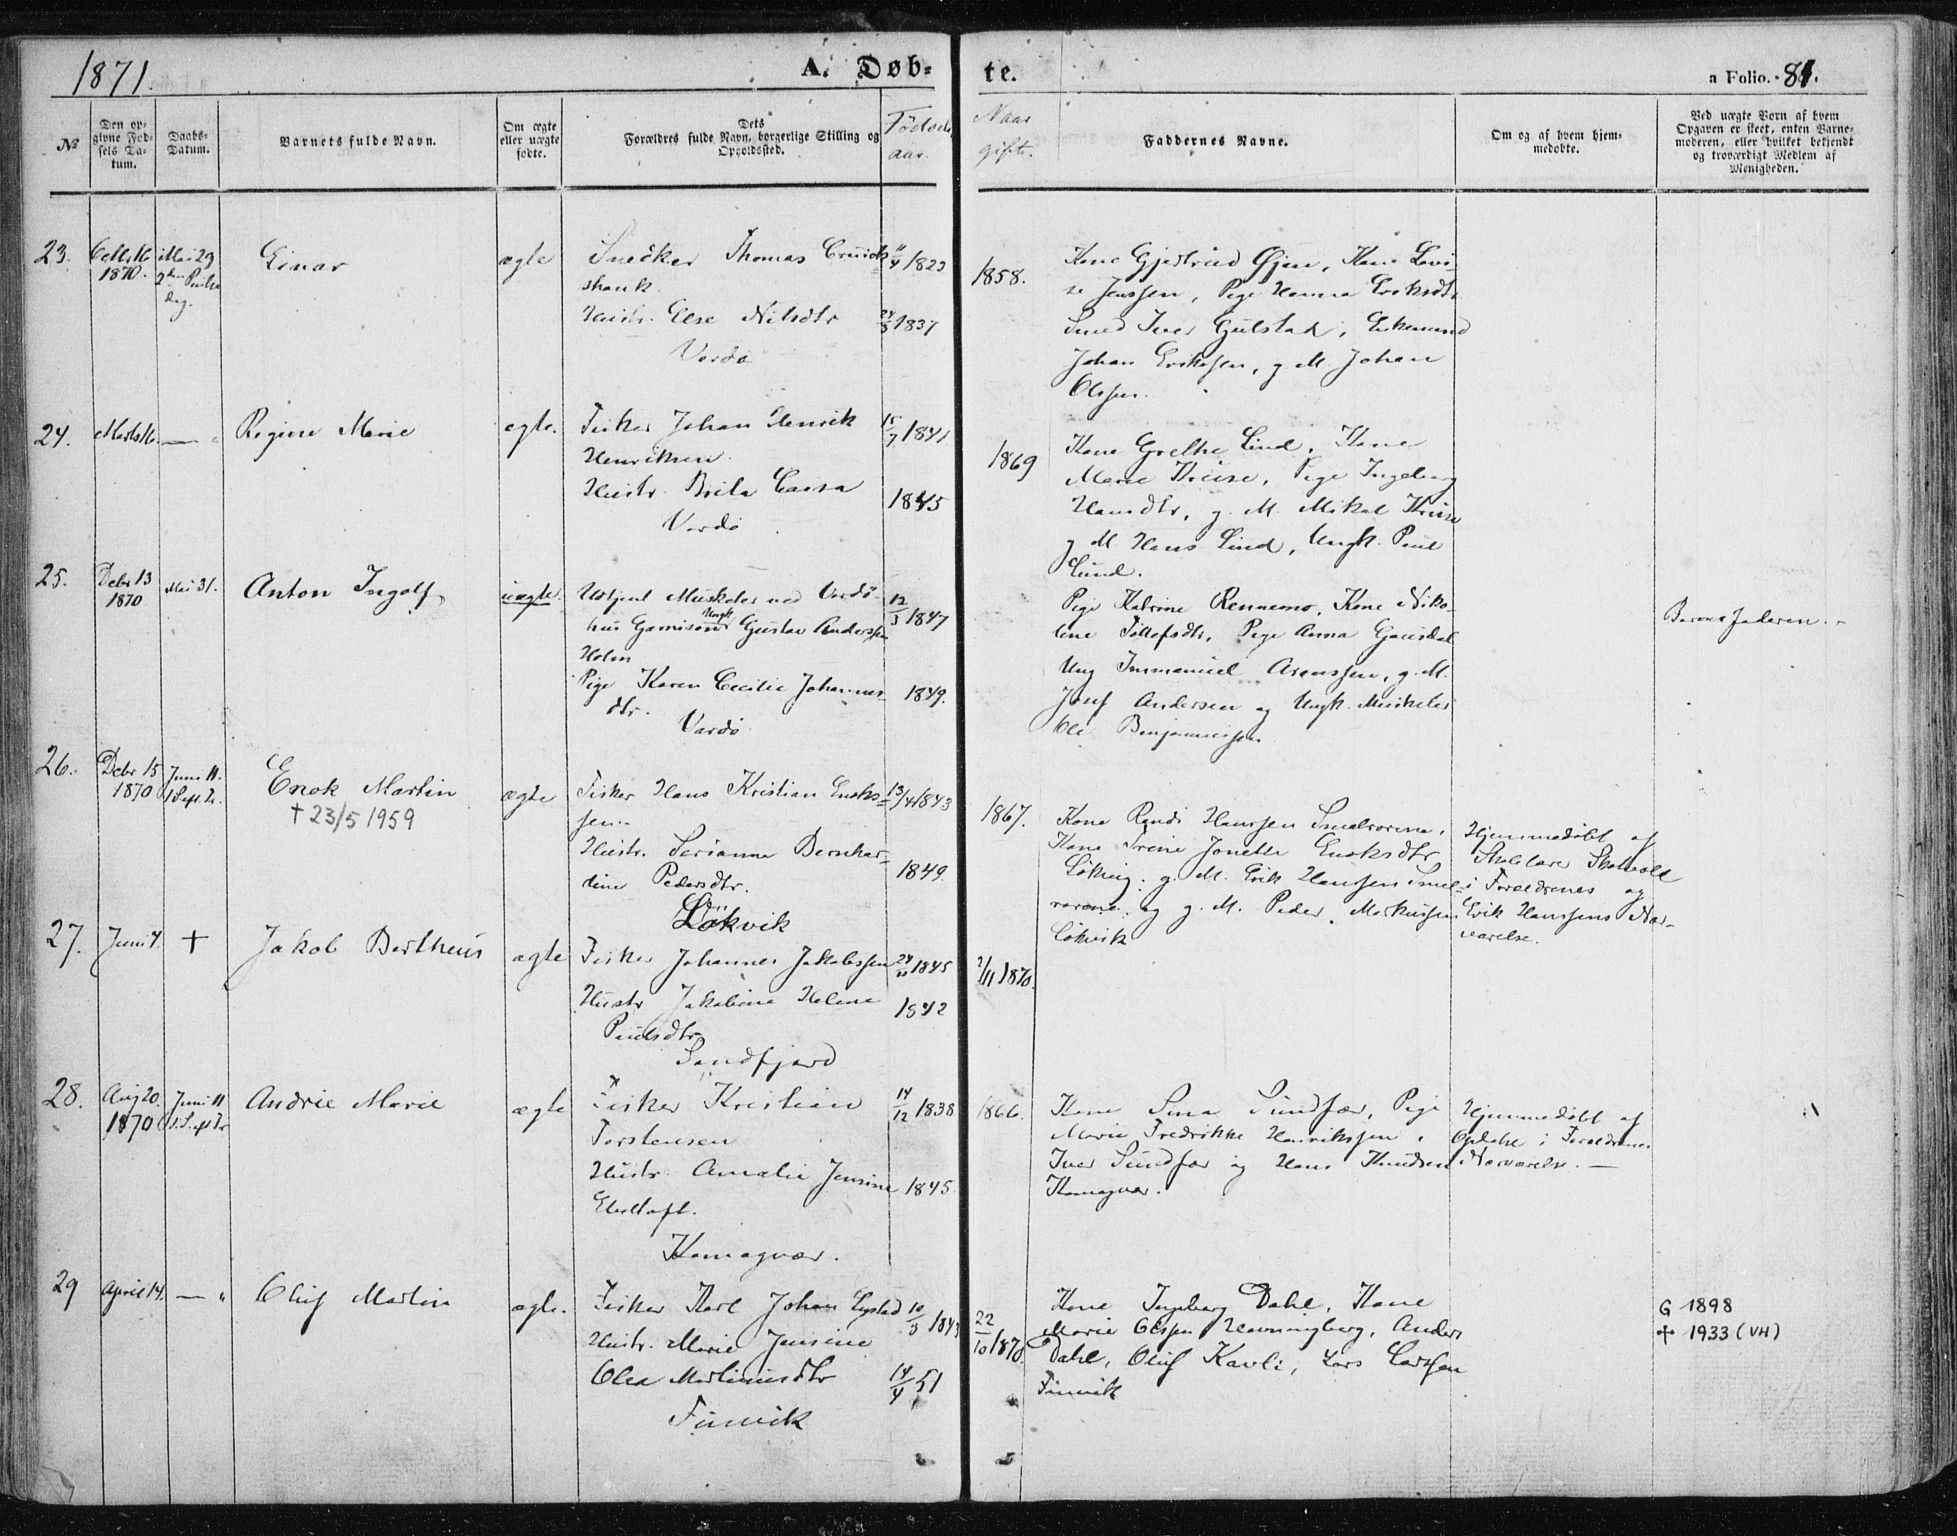 1871.
A. Døb-
te.
a Folio. 81.
№
Den op-
givne Fød-
sels Da-
tum.
Daabs-
Datum.
Barnets fulde Navn.
Om ægte
eller uægte
fødte.
Dets
Forældres fulde Navn, borgerlige Stilling og
Opholdssted.
Fødsels
aar.
Naar
gift.
Faddernes Navne.
Om og af hvem hjem-
medøbte.
Ved uægte Børn af hvem
Opgaven er skeet, enten Barne-
moderen, eller hvilket bekjendt
og troværdigt Medlem af
Menigheden.
23.
16
1870.
Mai 29
2den Pintse
dag.
Einar
ægte
Snedker Thomas Cruick
shank.
Hustr. Else Nilsdtr
Vardø
1823
1837
1858.
Kone Gjertrud Øjen, Kone Lovi-
se Jenssen, Pige Hanna Eriksdtr
Smed Iver Gulstad, Enkemand
Johan Eriksen, g. M. Johan
Olsen.
24.
Marts 16.
— "
Regine Marie
ægte.
Fisker Johan Henrik
Henriksen.
Hustr. Brita
Vardø
15/7 1841
1845
1869
Kone Grethe Lind, Kone
Marie Kruse, Pige Ingeborg
Hansdtr, g. M. Mikal Kruse
g M. Hans Lind, Ungk. Paul
Lund.
25.
Debr 13
1870
Mai 31.
Anton Ingolf
uægte.
Udtjent Musketer ved Vardø-
hus Garnison Ungk Gustav Anderssen
Holm
Pige Karen Cecilie Johannes-
dtr.
Vardø
12/3 1847
1849.
Pige Katrine Rennemo, Kone Niko-
line Tollefsdtr, Pige Anna Gausdal
Ung Immanuel Arenssen, g. M.
Josef Andersen og Ungk. Musketer
Ole Benjaminsen
Barnefaderen.
26.
Debr 15
1870
Juni 11.
1 S. ept. Tr.
Enok Martin
† 23/5 1959
ægte
Fisker Hans Kristian Enoks-
sen..
Hustr. Serianna Bernhar-
dine Pedersdtr.
Løkvik
13/4 1843
1849.
1867.
Kone Randi Hanssen Smelrorene,
Kone Trine Jonette Enoksdtr
Løkvig. g. M. Erik Hanssen Smel-
rorene. og g. M. Peder Markussen
Løkvik
Hjemmedøbt af
Skolelærer Skolvoll
i Forældrenes og
Erik Hanssens Nær-
værelse.
27.
Juni 4.
+
Jakob Bertheus
ægte
Fisker Johannes Jakobssen
Hustr Jakobine Helene
Paulsdtr
Sandfjord
1845
1842
2/11 1870.
28.
Aug 20.
1870
Juni 11
1. S. ept Tr
Andrie Marie
ægte
Fisker Kristian
Torstensen
Hustr. Amalie Jensine
Ebeltoft.
Komagvær.
14/12 1838
1845.
1866.
Kone Sina Sundfær, Pige
Marie Fredrikke Henrikssen,
Iver Sundfær og Hans Knudsen
Komagvær.
Hjemmedøbt af
Opdahl i Forældrenes
Nærværelse. —
29
April 14.
— "
Oluf Martin
ægte.
Fisker Karl Johan Lystad
Hustr. Marie Jensine
Olea Martinusdtr
Finvik
10/3 184
14/4 51
22/10 1870.
Kone Ingeborg Dahl, Kone
Marie Olssen Havningberg, Anders
Dahl, Oluf Kavli, Lars Larssen
Finvik
G 1898
+ 1933 (VH)